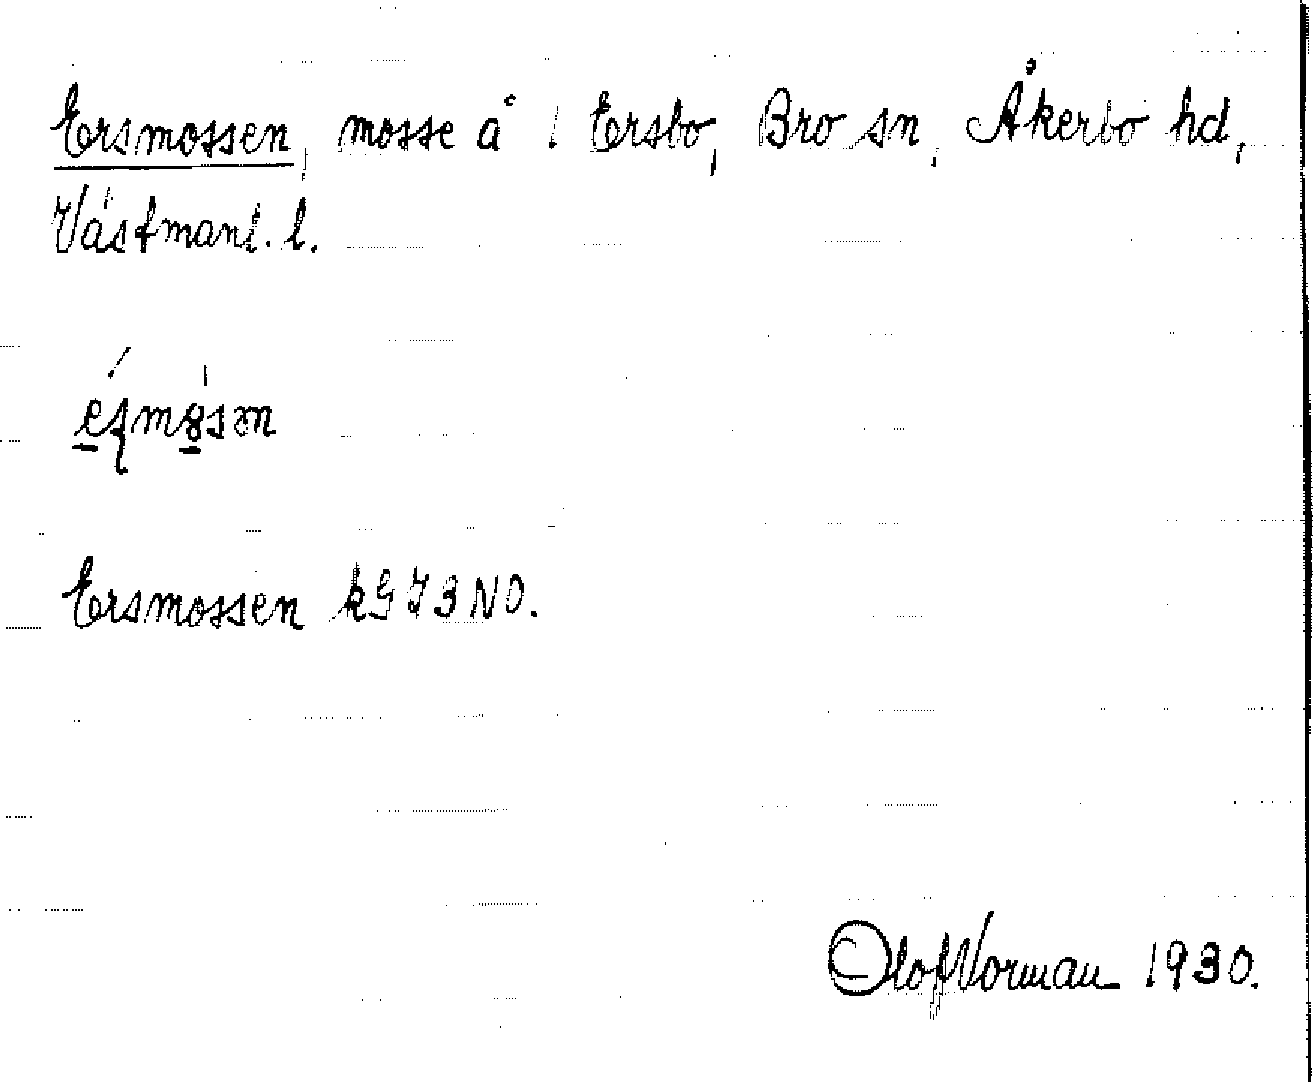 Ersmossen, mosse å l Ersbo, Bro sn, Åkerbo hd,
Västmanl. l.
Ersmossen k G 73 NO.
Olof Norman 1930.